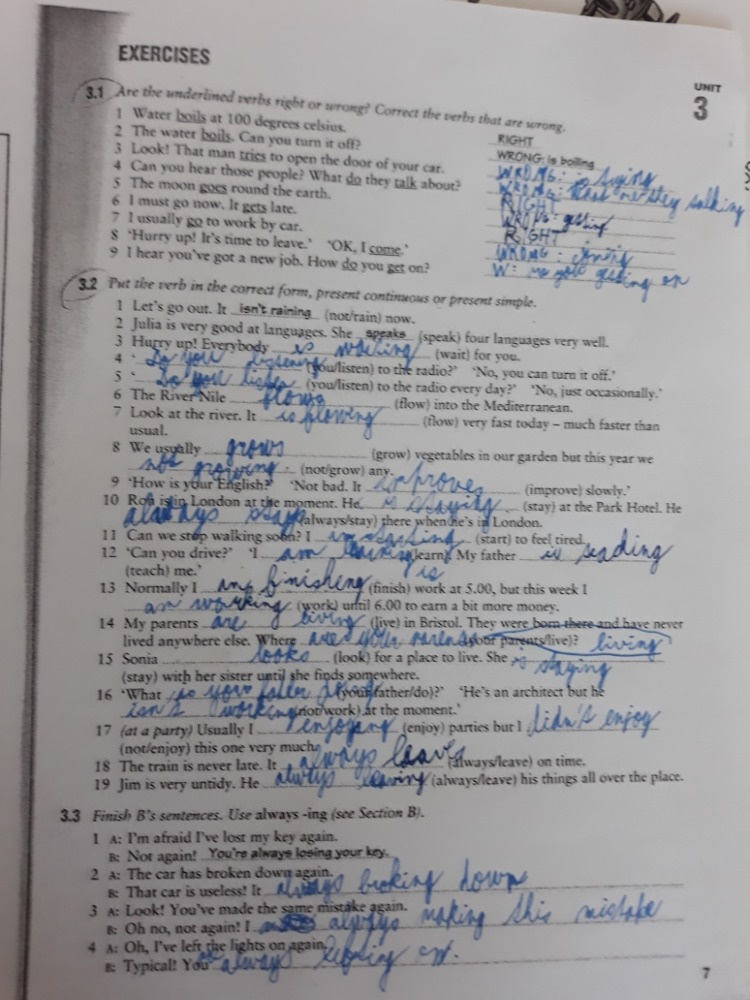 EXERCISES
UNIT
3
3.1 Are the underlined verbs right or wrong? Correct the verbs that are wrong.
1 Water boils at 100 degrees celsius. RIGHT
2 The water boils. Can you turn it off? WRONG: is boiling
3 Look! That man tries to open the door of your car. WRONG: is trying
4 Can you hear those people? What do they talk about? WRONG: they talking
5 The moon goes round the earth. RIGHT
6 I must go now. It gets late. WRONG: getting
7 I usually go to work by car. RIGHT
8 'Hurry up! It's time to leave.' 'OK, I come.' WRONG: coming
9 I hear you've got a new job. How do you get on? W: you getting on
3.2 Put the verb in the correct form, present continuous or present simple.
1 Let's go out. It isn't raining (not/rain) now.
2 Julia is very good at languages. She speaks (speak) four languages very well.
3 Hurry up! Everybody is waiting (wait) for you.
4 ' Do you listening (you/listen) to the radio?' 'No, you can turn it off.'
5 ' Do you listen (you/listen) to the radio every day?' 'No, just occasionally.'
6 The River Nile flows (flow) into the Mediterranean.
7 Look at the river. It is flowing (flow) very fast today – much faster than
usual.
8 We usually grows (grow) vegetables in our garden but this year we
not growing (not/grow) any.
9 'How is your English?' 'Not bad. It improves (improve) slowly.'
10 Ron is in London at the moment. He is staying (stay) at the Park Hotel. He
always stays (always/stay) there when he's in London.
11 Can we stop walking soon? I starting (start) to feel tired.
12 'Can you drive?' 'I am learning (learn). My father is
(teach) me.' is
13 Normally I am finishing (finish) work at 5.00, but this week I
am working (work) until 6.00 to earn a bit more money.
14 My parents are living (live) in Bristol. They were born there and have never
lived anywhere else. Where are your parents (your parents/live)? living
15 Sonia looks (look) for a place to live. She is staying
(stay) with her sister until she finds somewhere.
16 'What your father (your father/do)?' 'He's an architect but he
isn't working (not/work) at the moment.'
17 (at a party) Usually I enjoying (enjoy) parties but I didn't enjoy
(not/enjoy) this one very much.
18 The train is never late. It always leavs (always/leave) on time.
19 Jim is very untidy. He always leaving (always/leave) his things all over the place.
3.3 Finish B's sentences. Use always -ing (see Section B).
1 A: I'm afraid I've lost my key again.
B: Not again! You're always losing your key.
2 A: The car has broken down again.
B: That car is useless! It always broking down
3 A: Look! You've made the same mistake again.
B: Oh no, not again! I always making this mistake
4 A: Oh, I've left the lights on again.
B: Typical! You always
7